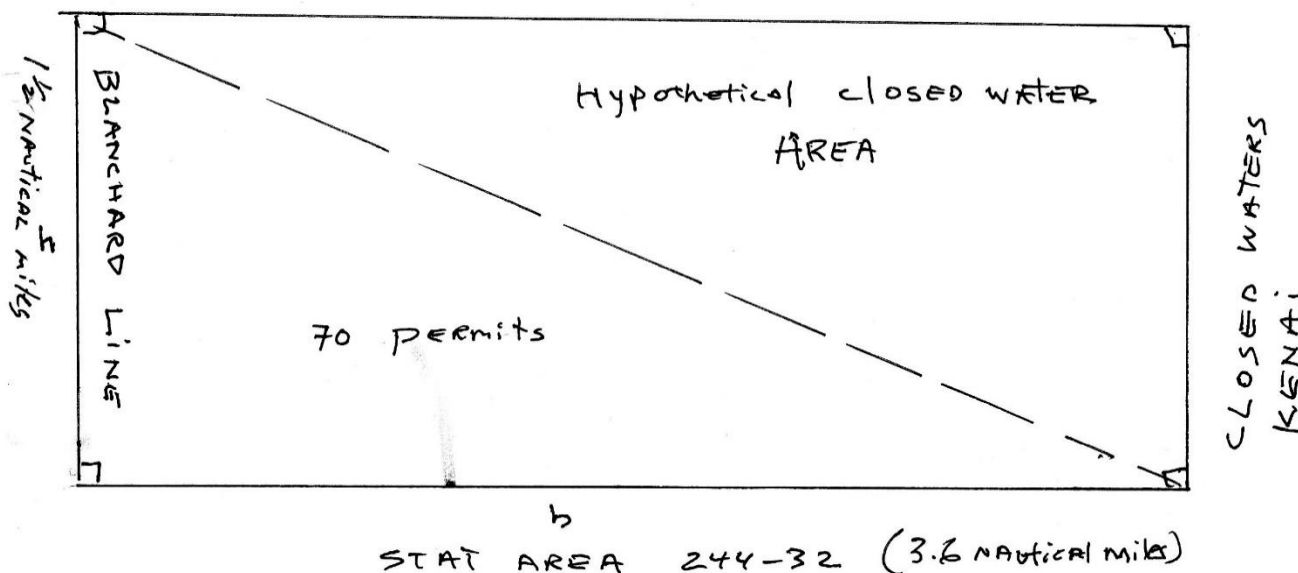 1 1/2 NAUTICAL miles
BLANCHARD LINE
Hypothetical CLOSED WATER
AREA
70 PERMITS
CLOSED WATERS
KENAI
b
STAT AREA 244-32 (3.6 NAUTICAL miles)